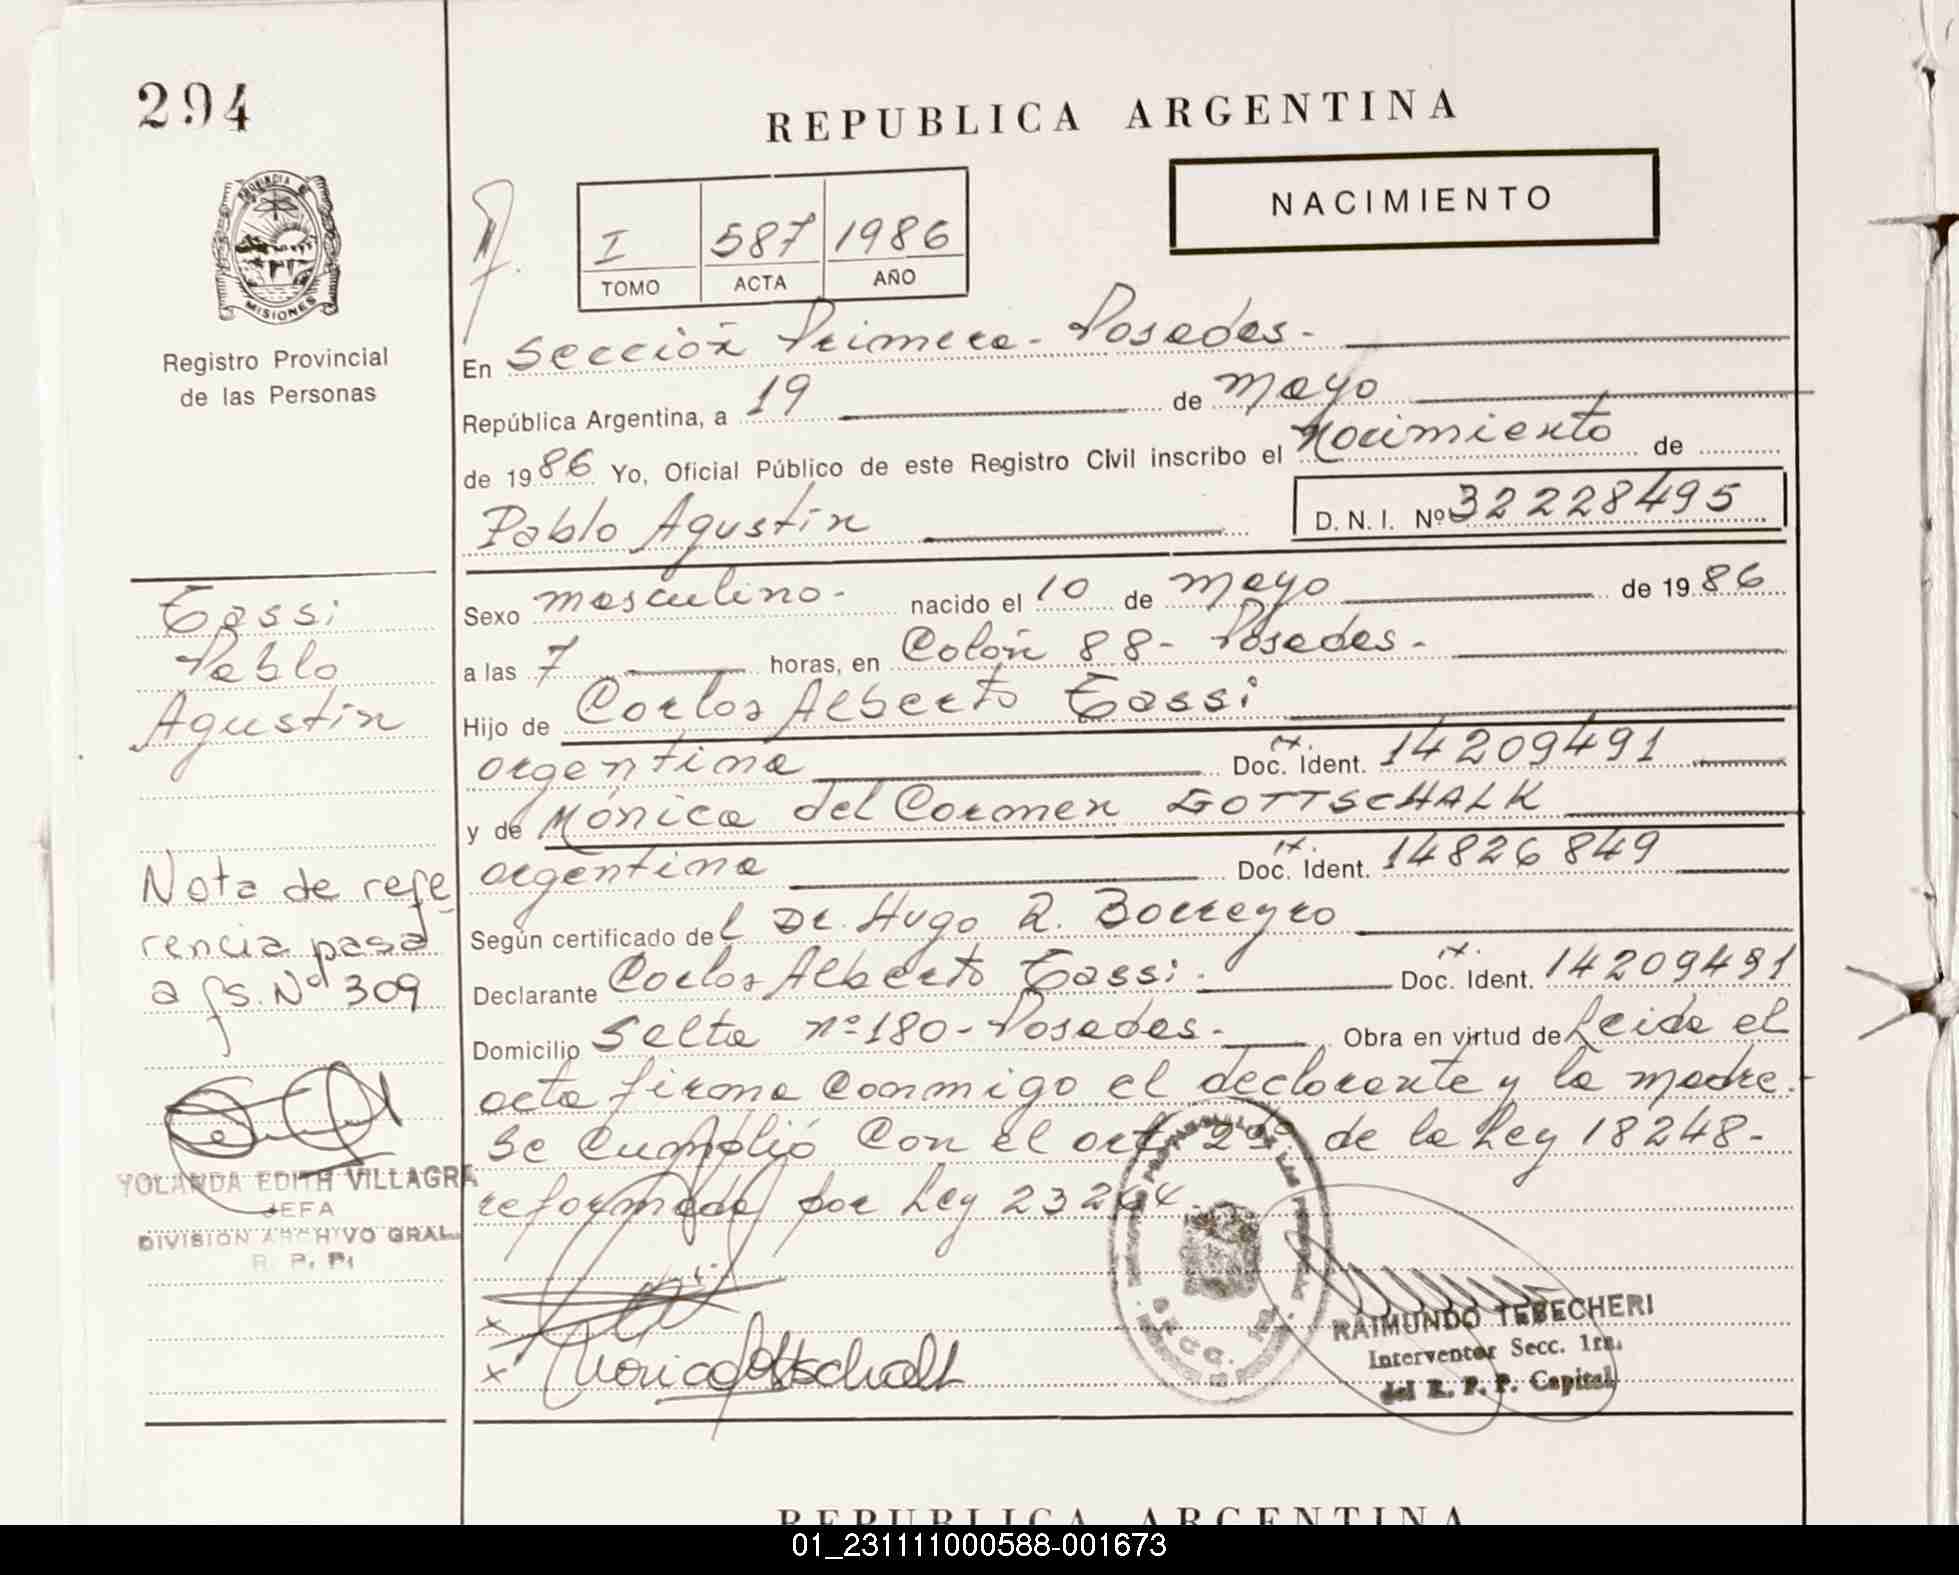 294
REPUBLICA ARGENTINA
NACIMIENTO
I 587 1986
TOMO ACTA AÑO
PROVINCIA DE
MISIONES
Registro Provincial
de las Personas
En Sección Primera - Posadas -
República Argentina, a 19 de mayo
de 1986 Yo, Oficial Público de este Registro Civil inscribo el Nacimiento de
Pablo Agustín D. N. I. Nº 32228495
Tassi
Pablo
Agustín
Sexo masculino - nacido el 10 de mayo de 1986
a las 7 horas, en Colón 88 - Posadas -
Hijo de Carlos Alberto Tassi
argentina Doc. Ident. 14209491
y de Mónica del Carmen GOTTSCHALK
argentina Doc. Ident. 14826849
Según certificado del Dr. Hugo R. Borreyro
Declarante Carlos Alberto Tassi - Doc. Ident. 14209491
Domicilio Salta nº 180 - Posadas - Obra en virtud de Leida el
acta firma conmigo el declarante y la madre.
Se cumplió con el art 2do de la Ley 18248 -
reformada por Ley 23264
Nota de refe
rencia pasa
a fs. Nº 309
YOLANDA EDITH VILLAGRA
JEFA
DIVISION ARCHIVO GRAL.
R. P. P.
x
x Monica Gottschalk
RAIMUNDO TEBECHERI
Interventor Secc. 1ra.
del R. P. P. Capital
REPUBLICA ARGENTINA
01_231111000588-001673